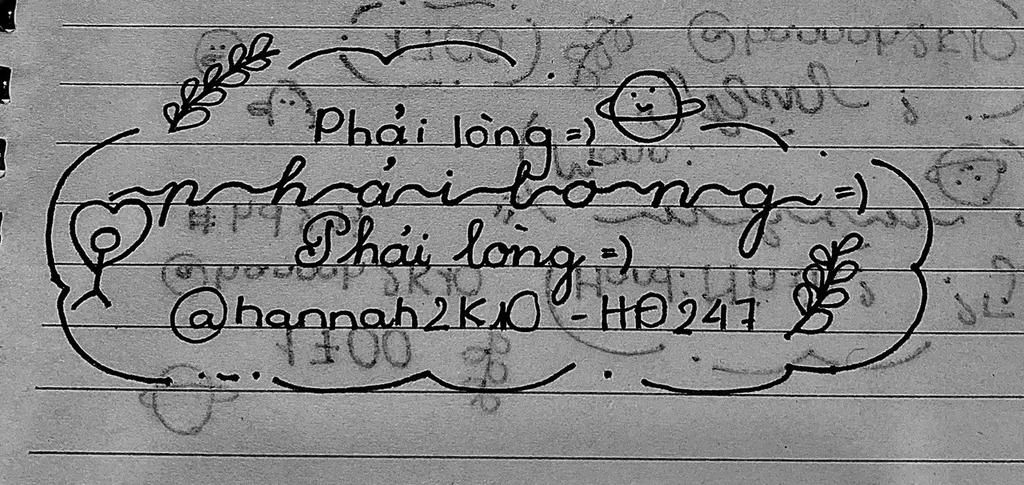 Phải lòng =)
phải lòng =)
Phải lòng =)
@hannah2K10 - HĐ247